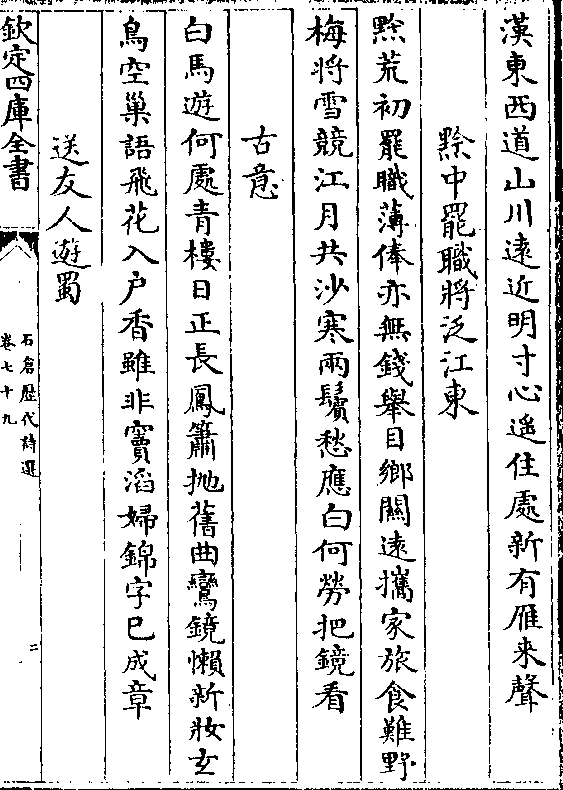 漢東西道山川遠近明寸心遥住處新有雁来聲
黔中罷職將泛江東
黔荒初罷職薄俸亦無錢舉目鄉關遠攜家旅食難野
梅將雪競江月共沙寒兩鬢愁應白何勞把鏡看
古意
白馬遊何處青樓日正長鳳簫抛舊曲鸞鏡懶新妝玄
鳥空巢語飛花入户香雖非竇滔婦錦字已成章
送友人遊蜀
欽定四庫全書
石倉歴代詩選
卷七十九
二